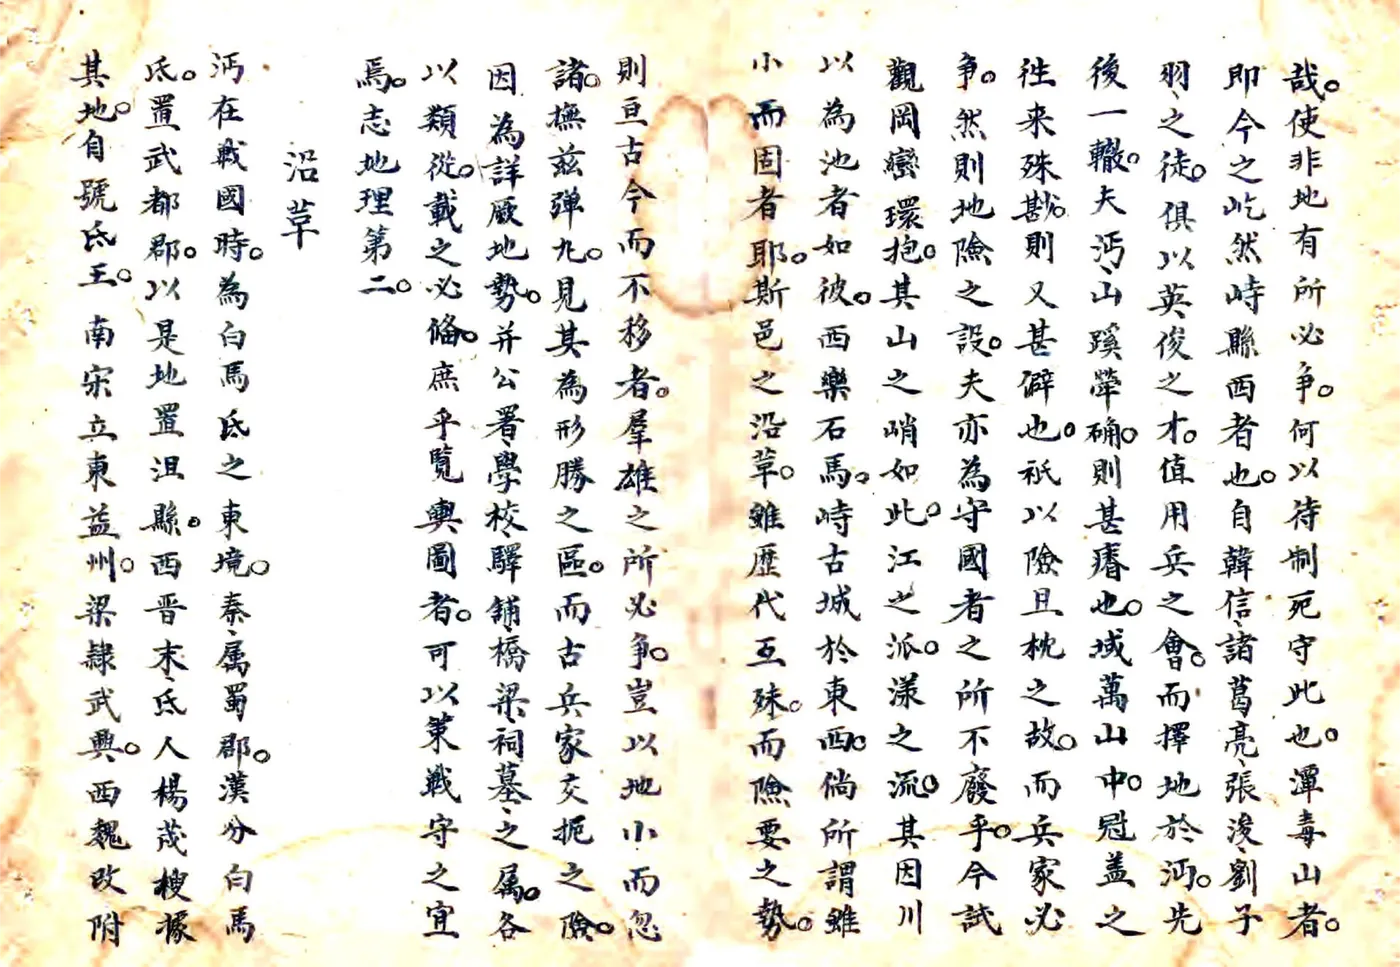 哉。使非地有所必争。何以待制死守此也。潭毒山者。
即今之屹然峙縣西者也。自韓信、諸葛亮、張浚、劉子
羽、之徒。俱以英俊之才。值用兵之會。而擇地於沔。先
後一轍。夫沔、山蹊犖确。則甚瘠也。域萬山中。冠盖之
徃来殊尠。則又甚僻也。祇以險且枕之故。而兵家必
争。然則地險之設。夫亦為守國者之所不廢乎。今試
觀岡巒環抱。其山之峭如此。江之派。漾之流。其因川
以為池者如彼。西樂石馬。峙古城於東西。倘所謂雖
小而固者耶。斯邑之沿革。雖歷代互殊。而險要之勢。
則亘古今而不移者。羣雄之所必争。豈以地小而忽
諸。撫兹弹丸。見其為形勝之區。而古兵家交扼之險。
因為詳厥地勢。并公署、學校、驛舖、橋梁、祠墓、之属。各
以類從。載之必俻。庶乎覧輿圖者。可以策戰守之宜
焉。志地理第二。
沿革
沔在戰國時。為白馬氐之東境。秦、属蜀郡。漢分白馬
氐。置武都郡。以是地置沮縣。西晋末、氐人楊茂搜據
其地。自號氐王。南宋立東益州。梁隸武興。西魏改附